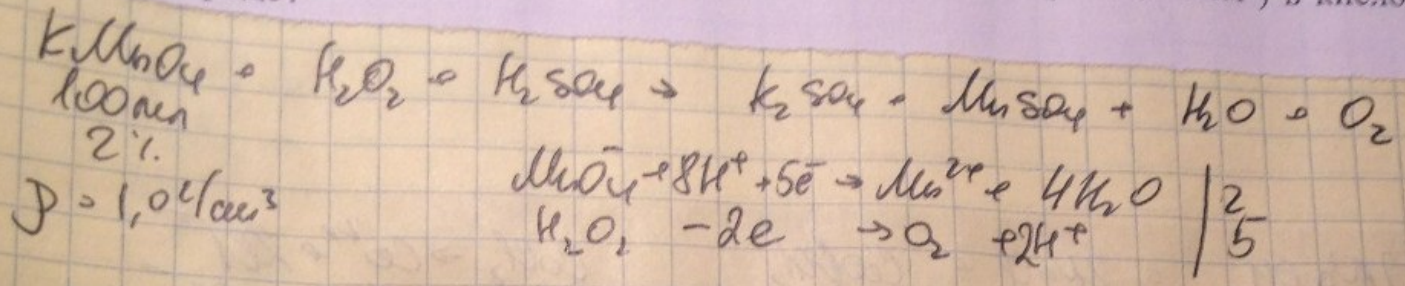 KMnO4 + H2O2 + H2SO4 → K2SO4 + MnSO4 + H2O + O2
100мл
2%
ρ = 1,0 г/см³
MnO4⁻ + 8H⁺ + 5e⁻ → Mn²⁺ + 4H2O | 2
H2O2 - 2e → O2 + 2H⁺ | 5